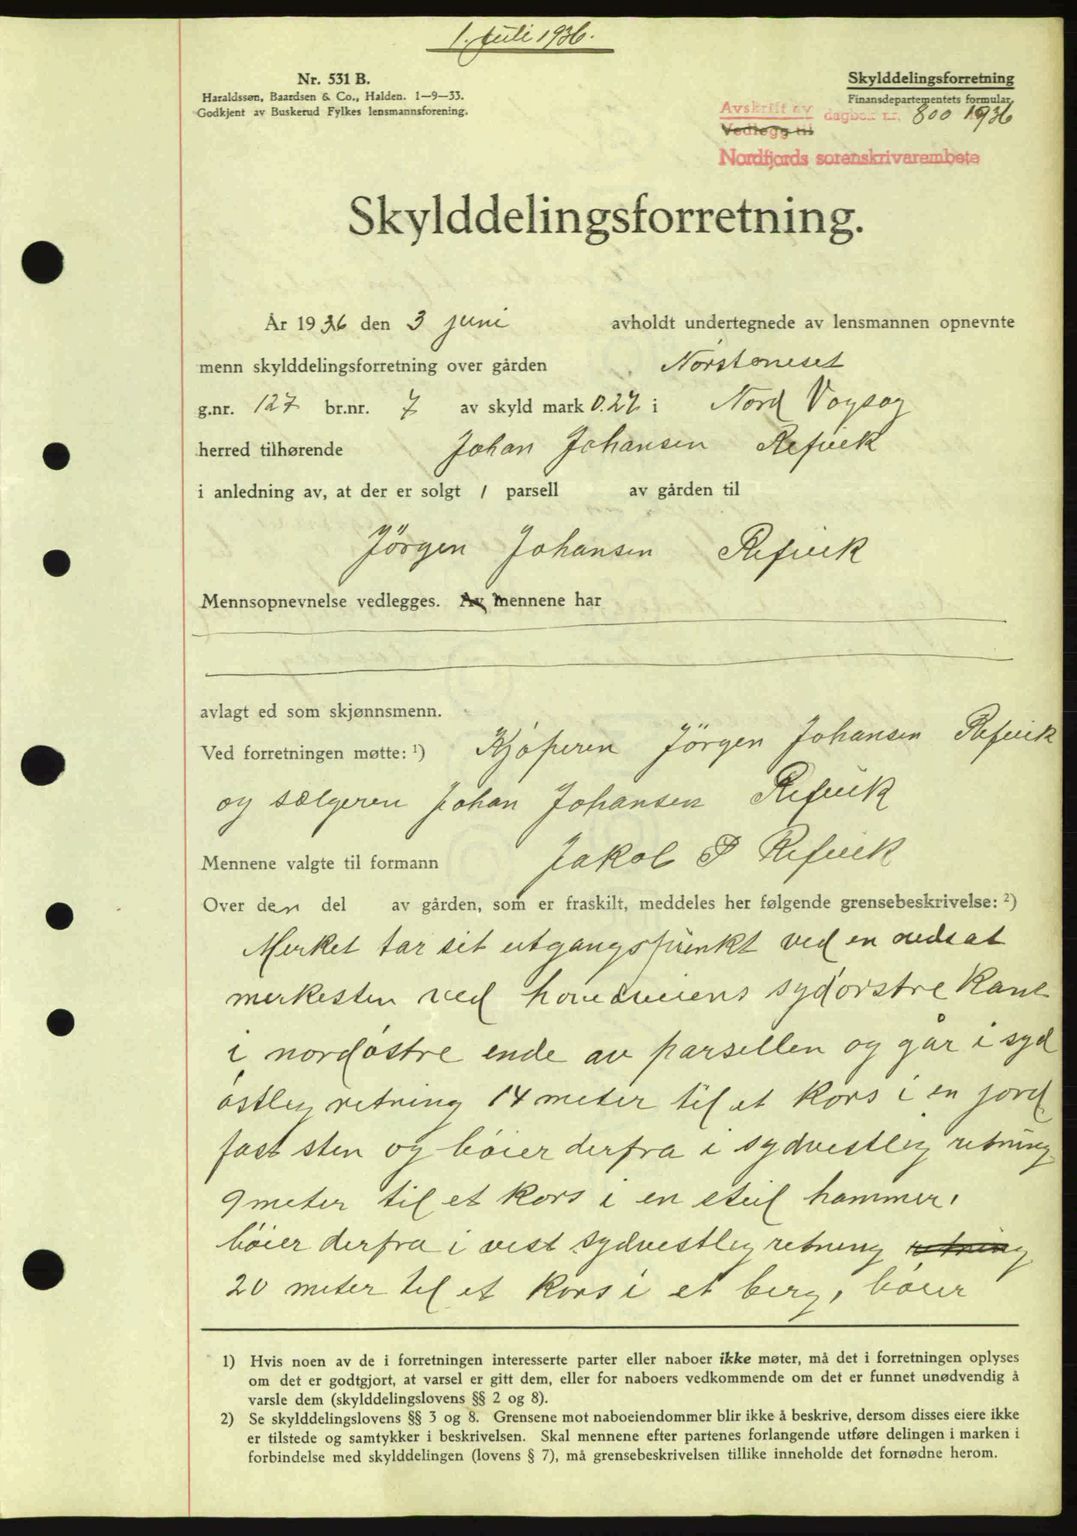 1. juli 1936.
Nr. 531 B.
Haraldssøn, Baardsen & Co., Halden. 1—9—33.
Godkjent av Buskerud Fylkes lensmannsforening.
Skylddelingsforretning
Finansdepartementets formular.
Avskrift av
Vedlegg til
dagbok nr. 800 1936
Nordfjords sorenskrivarembete
Skylddelingsforretning.
År 1936 den 3 juni avholdt undertegnede av lensmannen opnevnte
menn skylddelingsforretning over gården Nórstoneset
g.nr. 127 br.nr. 7 av skyld mark 0.27 i Nord Vogsøy
herred tilhørende Johan Johansen Refvik
i anledning av, at der er solgt 1 parsell av gården til
Jörgen Johansen Refvik
Mennsopnevnelse vedlegges. Av mennene har
avlagt ed som skjønnsmenn.
Ved forretningen møtte: ¹) Kjóperen Jörgen Johansen Refvik
og sælgeren Johan Johansen Refvik
Mennene valgte til formann Jakob P Refvik
Over den del av gården, som er fraskilt, meddeles her følgende grensebeskrivelse: ²)
Merket tar sit utgangspunkt ved en nedsat
merkesten ved hovedveiens sydóstre kant
i nordóstre ende av parsellen og går i syd
óstleg retning 14 meter til et kors i en jord
fast sten og bóier derfra i sydvestlig retning
9 meter til et kors i en steil hammer,
bóier derfra i vest sydvestleg retning retning
20 meter til et kors i et berg, bóier
1) Hvis noen av de i forretningen interesserte parter eller naboer ikke møter, må det i forretningen oplyses
om det er godtgjort, at varsel er gitt dem, eller for naboers vedkommende om det er funnet unødvendig å
varsle dem (skylddelingslovens §§ 2 og 8).
2) Se skylddelingslovens §§ 3 og 8. Grensene mot naboeiendommer blir ikke å beskrive, dersom disses eiere ikke
er tilstede og samtykker i beskrivelsen. Skal mennene efter partenes forlangende utføre delingen i marken i
forbindelse med skylddelingen (lovens § 7), må grensebeskrivelsen tillike inneholde det fornødne herom.